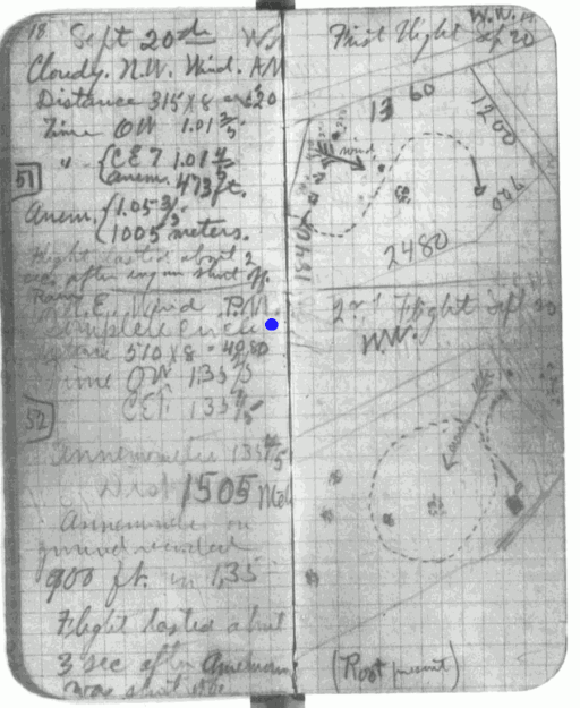 18 Sept 20
Cloudy. N.W. Wind. AM
Distance 315 X 8 = 2520
Time OW 1.01 2/5
" C.E.T 1.01 4/5
anem. 473 ft.
51
Anem. 1.05 3/5
1005 meters.
Flight lasted about 2
sec. after engine shut off.
Wind P.M.
Complete Circle
Distance 510 X 8 = 4080
Time OW 1.35
C.E.T. 1.35
52
Annemometer 1.35
Dist 1505
Annemometer on
ground recorded
900 ft. in 1.35
Flight lasted about
3 sec after Anemom
was shut
W.W.
First Flight Sep 20
13 60
1200
wind
700
1840
2480
2nd Flight Sept 20
W.W.
(Root present)